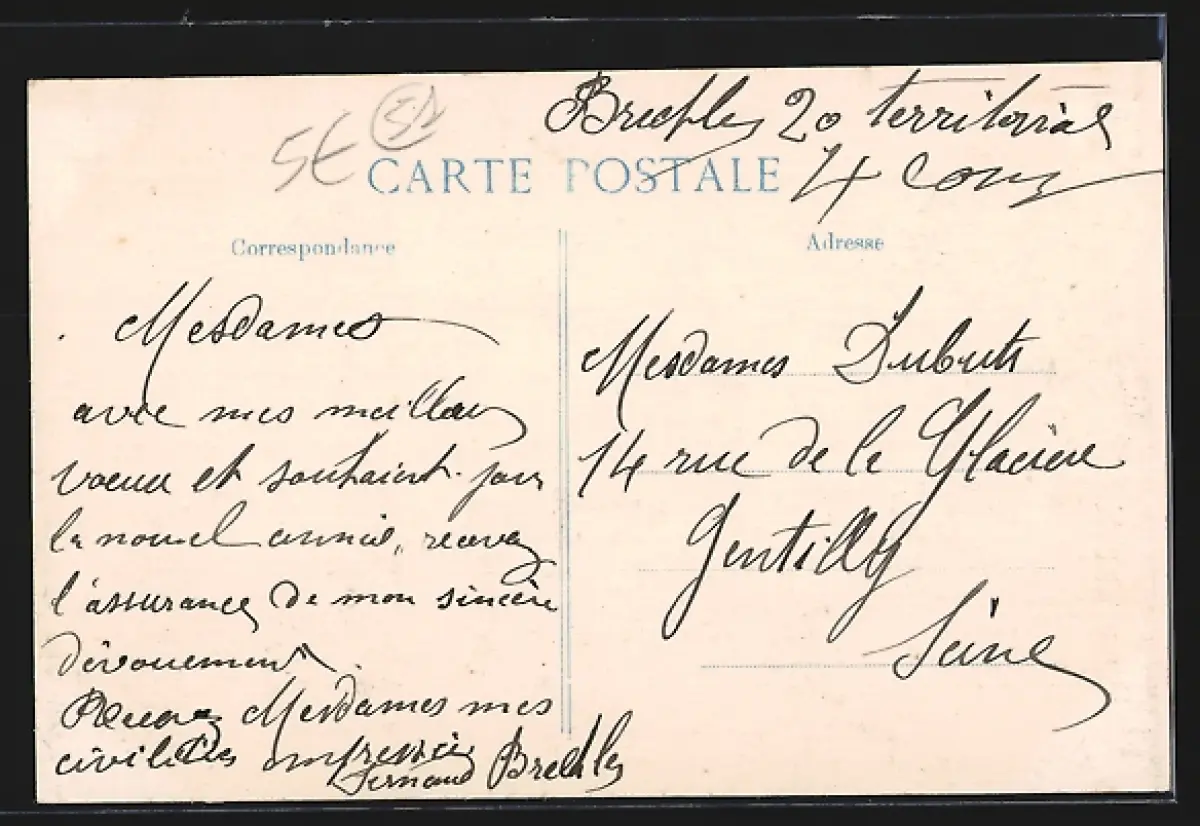 5€ 51
20 territorial
4 Comp
CARTE POSTALE
Correspondance
Adresse
Mesdames
avec mes meilleurs
voeux et souhaints pour
la nouvel année, recevez
l'assurance de mon sincère
dévouement.
Recevez Mesdames mes
civilités empressées
Fernand
Mesdames Dubuts
14 rue de la Glacière
Gentilly
Seine